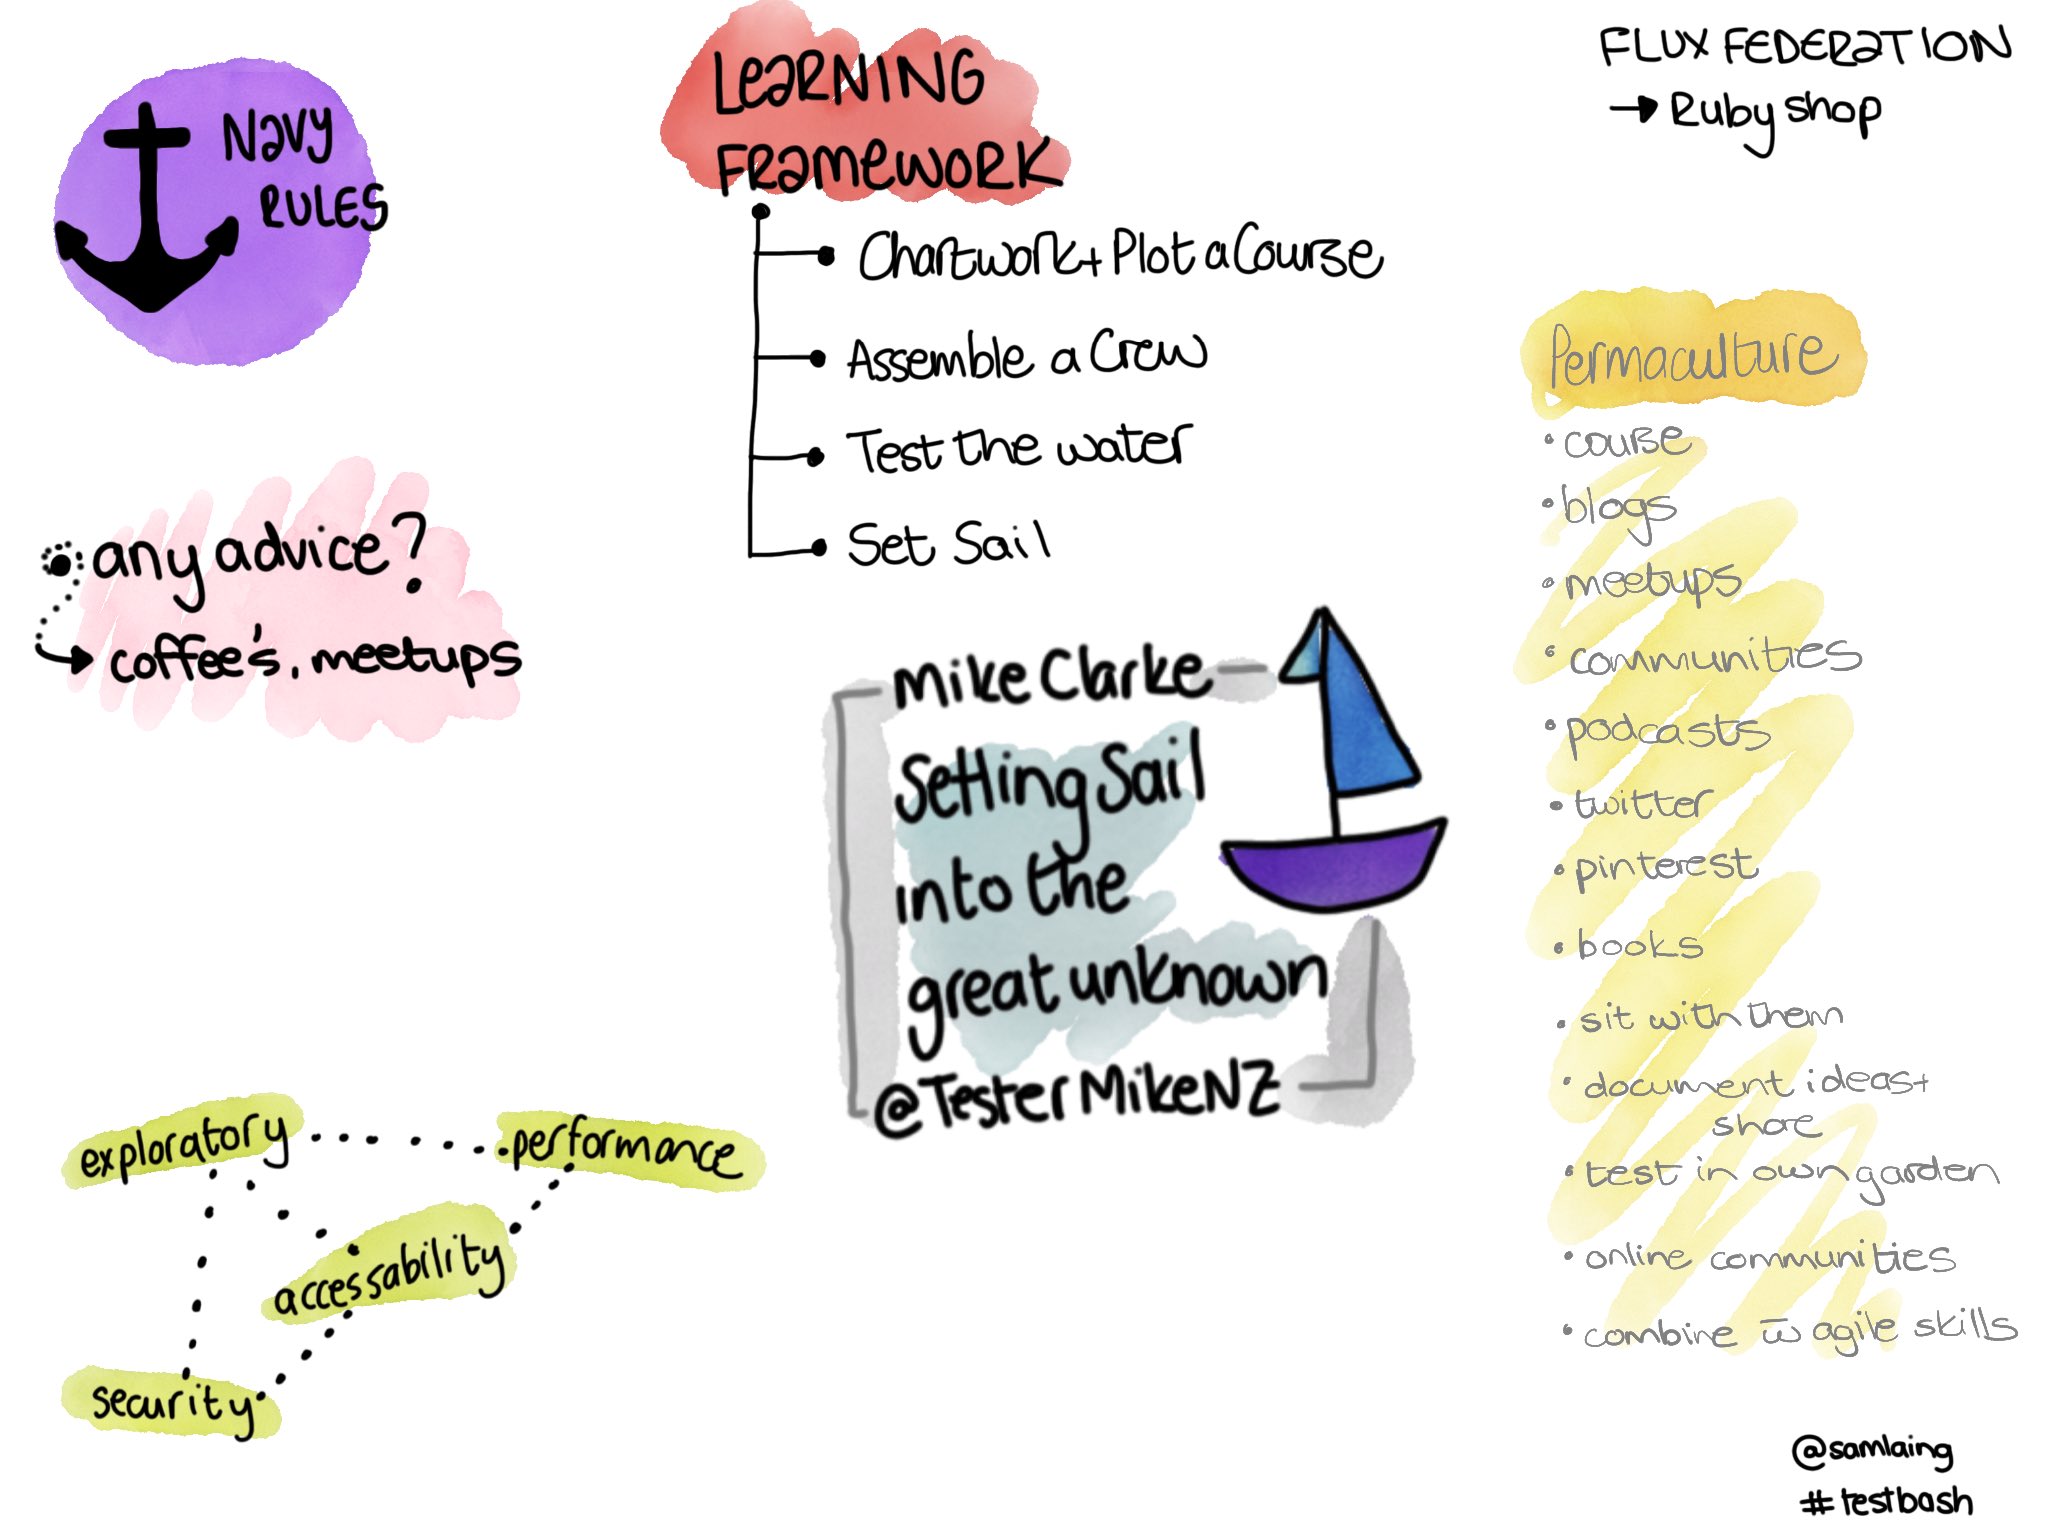 Navy
Rules
Learning
Framework
Chartwork + Plot a Course
Assemble a Crew
Test the water
Set Sail
FLUX FEDERATION
→ Ruby shop
any advice?
coffee's, meetups
Mike Clarke
Setting Sail
into the
great unknown
@TesterMikeNZ
exploratory
performance
accessability
security
Permaculture
• course
• blogs
• meetups
• communities
• podcasts
• twitter
• pinterest
• books
• sit with them
• document ideas +
share
• test in own garden
• online communities
• combine w̄ agile skills
@samlaing
#testbash